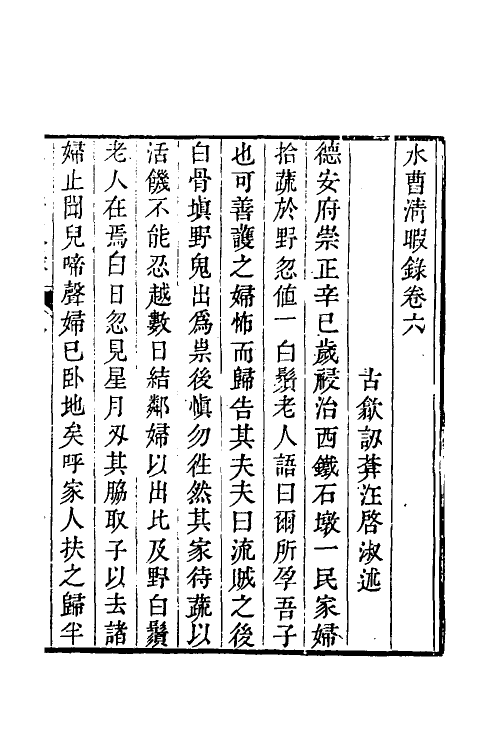 水曹淸暇錄卷六
古歙訒葊汪啓淑述
德安府崇正辛巳歲祲治西鐵石墩一民家婦
拾蔬於野忽値一白鬚老人語曰爾所孕吾子
也可善護之婦怖而歸告其夫夫曰流賊之後
白骨塡野鬼出爲祟後愼勿往然其家待蔬以
活饑不能忍越數日結鄰婦以出比及野白鬚
老人在焉白日忽見星月刄其脇取子以去諸
婦止聞兒啼聲婦已卧地矣呼家人扶之歸半